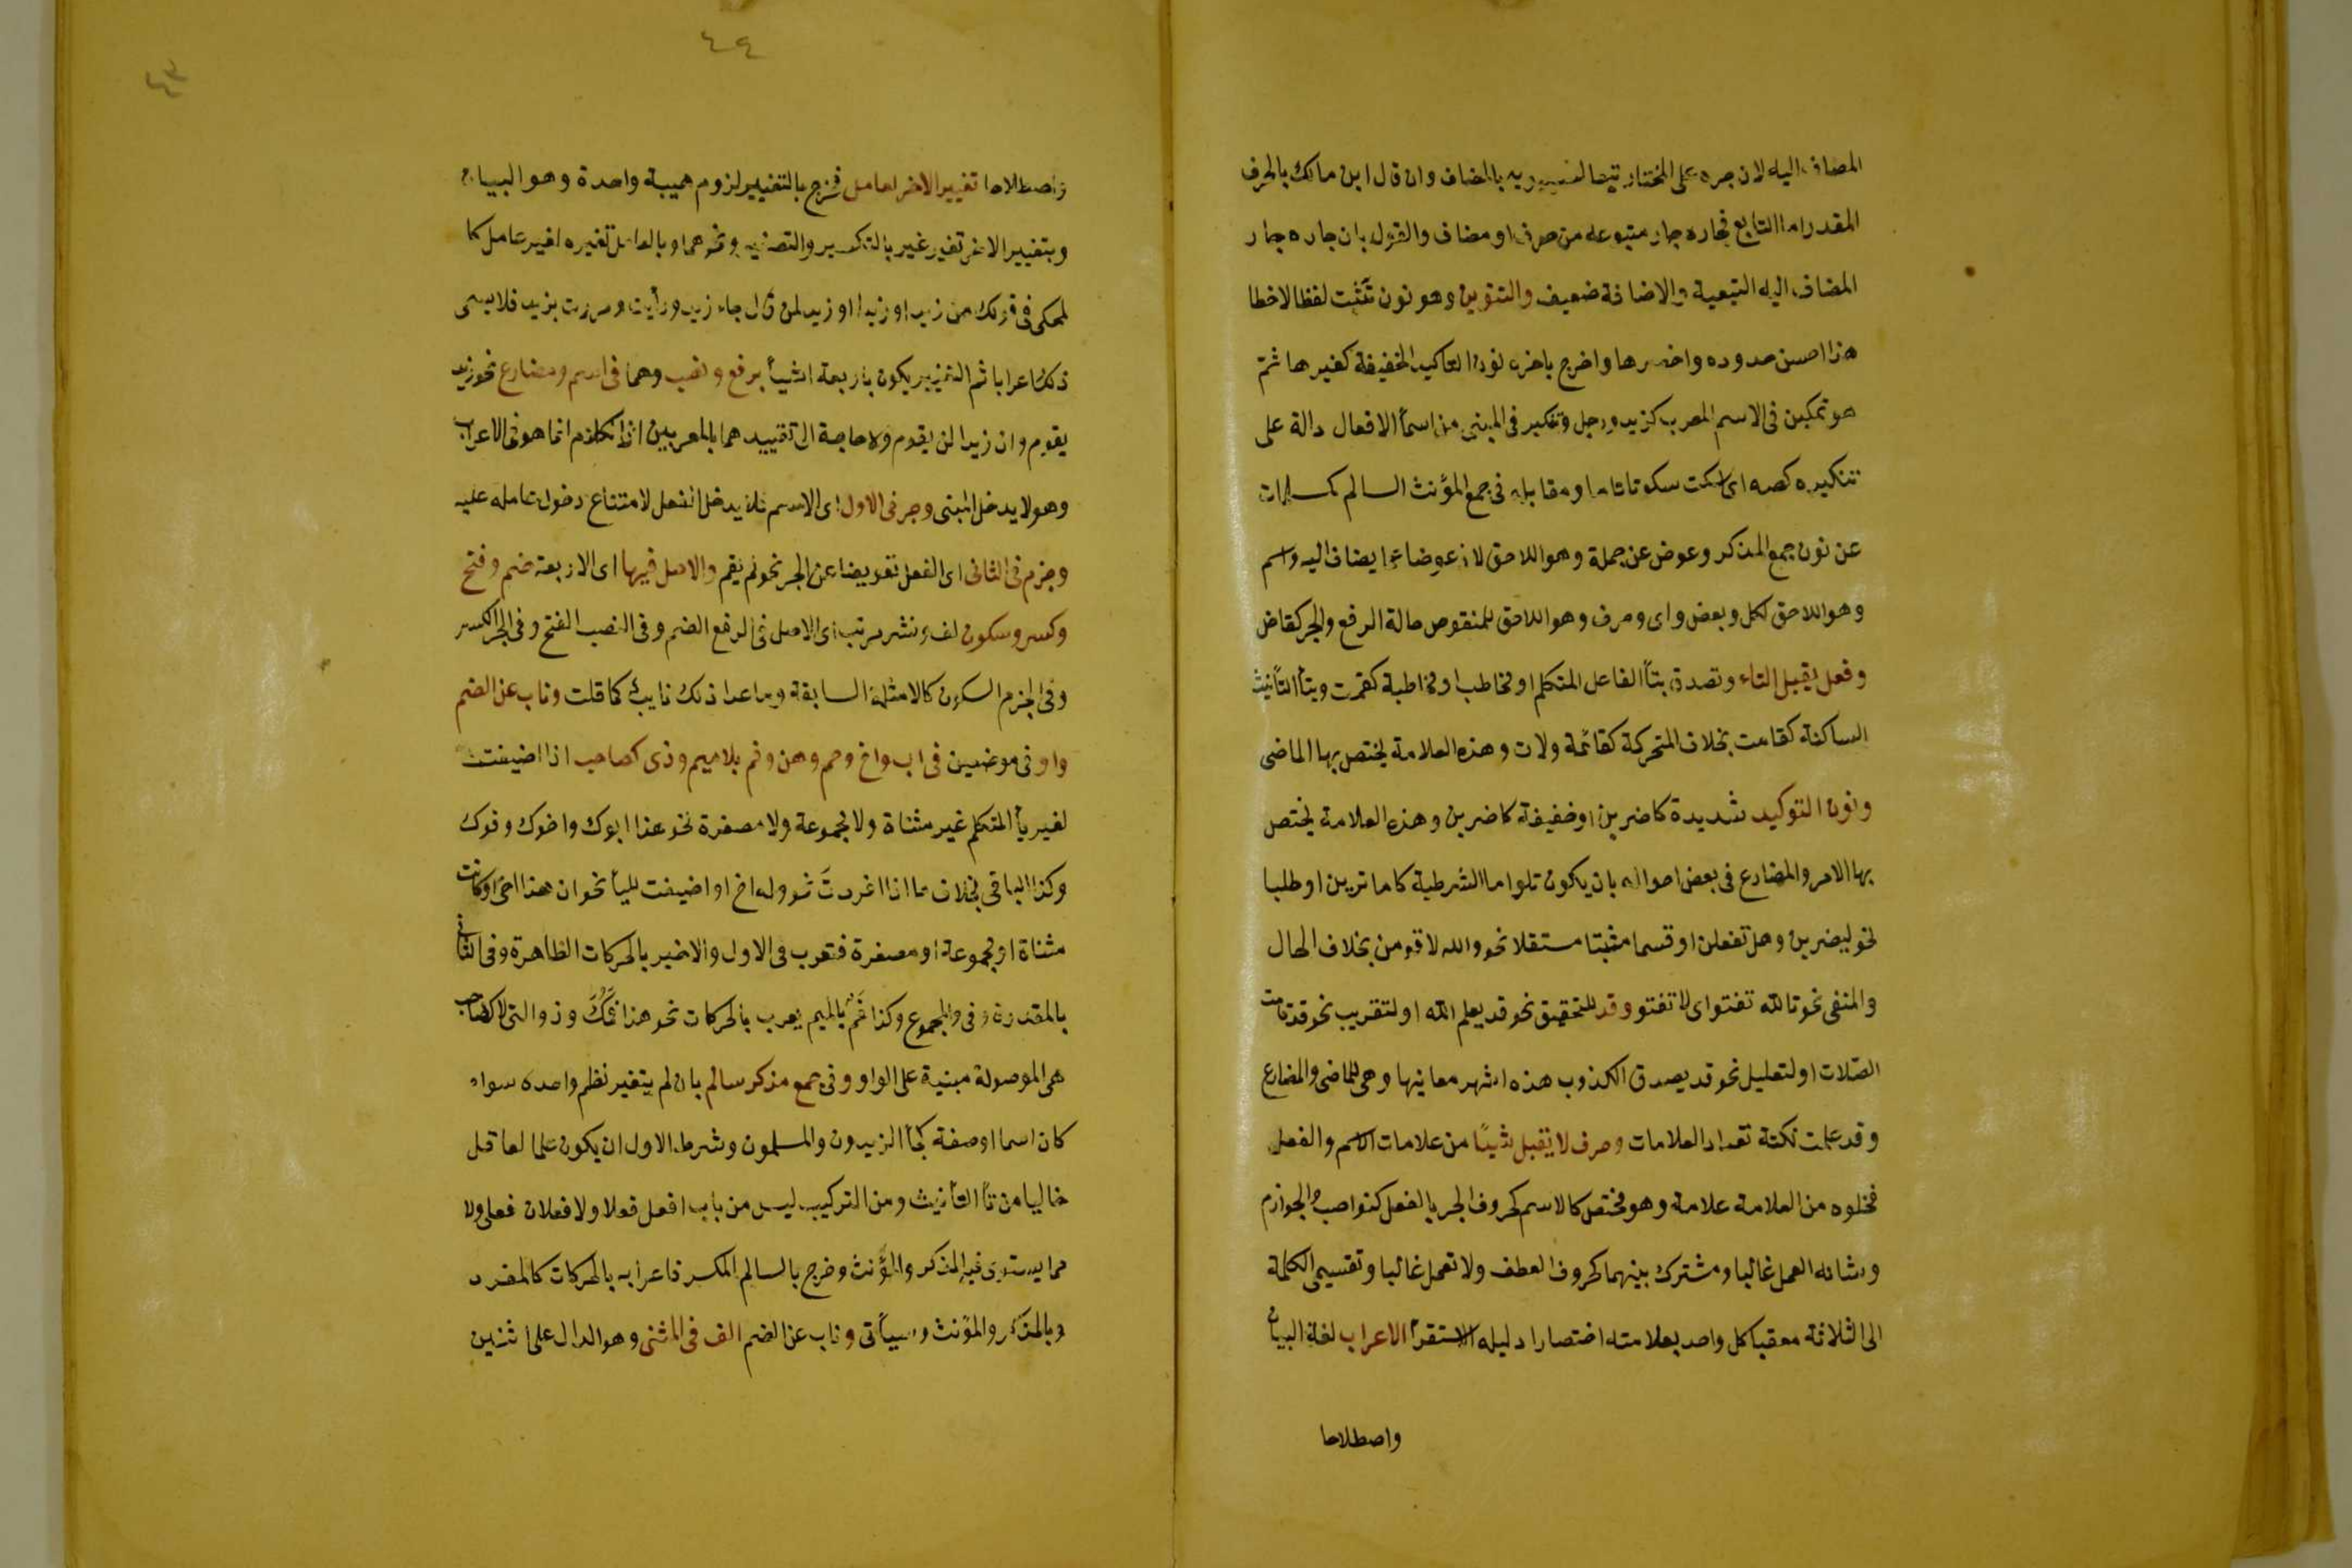 المضاف اليه لان جره على المختار تبعا لسيبويه بالمضاف وان قال ابن مالك بالحرف
المقدر اما التابع فجاره جار متبوعه من حرف او مضاف والقول بان جاره جار
المضاف اليه التبعية والاضافة ضعيف والتنوين وهو نون تثبت لفظا لاخطا
هذا احسن حدوده واخصرها واخرج باخره نون التاكيد الخفيفة كغيرها ثم
هو تمكين فى الاسم المعرب كزيد ورجل وتنكير فى المبنى من اسمأ الافعال دالة على
تنكيره كصه اى اسكت سكوتا تاما ومقابله فى جمع المؤنث السالم كمسلمات
عن نون جمع المذكر وعوض عن جملة وهو اللاحق لاذ عوضا عما يضاف اليه واسم
وهو اللاحق لكل وبعض واى وحرف وهو اللاحق للمنقوص حالة الرفع والجر كقاض
وفعل يقبل التاء وتصدق بتأ الفاعل المتكلم او مخاطب او مخاطبة كقمت وبتأ التأنيث
الساكنة كقامت بخلاف المتحركة كقائمة ولات وهذه العلامة يختص بها الماضى
ونون التوكيد شديدة كاضربن او خفيفة كاضربن وهذه العلامة يختص
بها الامر والمضارع فى بعض احواله بان يكون تلو اما الشرطية كاما ترين او طلبا
نحو ليضربن وهل تفعلن او قسما مثبتا مستقلا نحو والله لاقومن بخلاف الحال
والمنفى نحو تالله تفتو اى لا تفتو وقد للتحقيق نحو قد يعلم الله او لتقريب نحو قد قامت
الصلات او لتعليل نحو قد يصدق الكذوب هذه اشهر معانيها وهى للماضى والمضارع
وقد علمت نكتة تعداد العلامات وحرف لا يقبل شيئا من علامات الاسم والفعل
فخلوه من العلامة علامة وهو مختص كالاسم كحروف الجر بالفعل كنواصب والجوازم
وشانه العمل غالبا ومشترك بينهما كحروف العطف ولا تعمل غالبا وتقسيمى الكلمة
الى الثلاثة معقبا كل واحد بعلامته اختصارا دليله الاستقرأ الاعراب لغة البيان
واصطلاحا
٤٤
٤٣
واصطلاحا تغيير الاخر لعامل فخرج بالتغيير لزوم هيبة واحدة وهو البيان
وبتغيير الاخر تغير غير بالتكسير والتصغير ونحوهما وبالعامل تغيره لغير عامل كا
لمحكى فى قولك من زيد او زيدا او زيد لمن قال جاء زيد ورأيت ومررت بزيد فلا يسمى
ذلك اعرابا ثم التغيير يكون باربعة اشيأ برفع ونصب وهما فى اسم ومضارع نحو زيد
يقوم وان زيدا لن يقوم ولا حاجة الى تقييدهما بالمعربين اذا لكلام انما هو فى الاعراب
وهو لا يدخل المبنى وجر فى الاول اى الاسم فلا يدخل الفعل لامتناع دخول عامله عليه
وجزم فى الثانى اى الفعل تعويضا عن الجر نحو لم يقم والاصل فيها اى الاربعة ضم وفتح
وكسر وسكون لف ونشر مرتب اى الاصل فى الرفع الضم وفى النصب الفتح وفى الجر الكسر
وفى الجزم السكون كالامثلة السابقة وما عدا ذلك نايب كما قلت وناب عن الضم
واو فى موضعين فى اب واخ وحم وهن وفم بلا ميم وذى كصاحب اذا اضيفت
لغير يأ المتكلم غير مثناة ولا مجموعة ولا مصغرة نحو هذا ابوك واخوك وفوك
وكذا الباقى بخلاف ما اذا افردت نحو وله اخ او اضيفت لليأ نحو ان هذا اخى او كانت
مثناة او مجموعة او مصغرة فتعرب فى الاول والاخير بالحركات الظاهرة وفى الثانى
بالمقدرة وفى والمجموع وكذا فم بالميم يعرب بالحركات نحو هذا فمك وذو التى لا كصاحب
هى الموصولة مبنية على الواو وفى جمع مذكر سالم بان لم يتغير نظم واحده سواء
كان اسما او صفة كجأ الزيدون والمسلمون وشرط الاول ان يكون علما لعاقل
خاليا من تأ التأنيث ومن التركيب ليس من باب افعل فعلا ولا فعلان فعلى ولا
مما يستوى فيه المذكر والمؤنث وخرج بالسالم المكسر فاعرابه بالحركات كالمفرد
وبالمذكر والمؤنث وسيأتى وناب عن الضم الف فى المثنى وهو الدال على اثنين